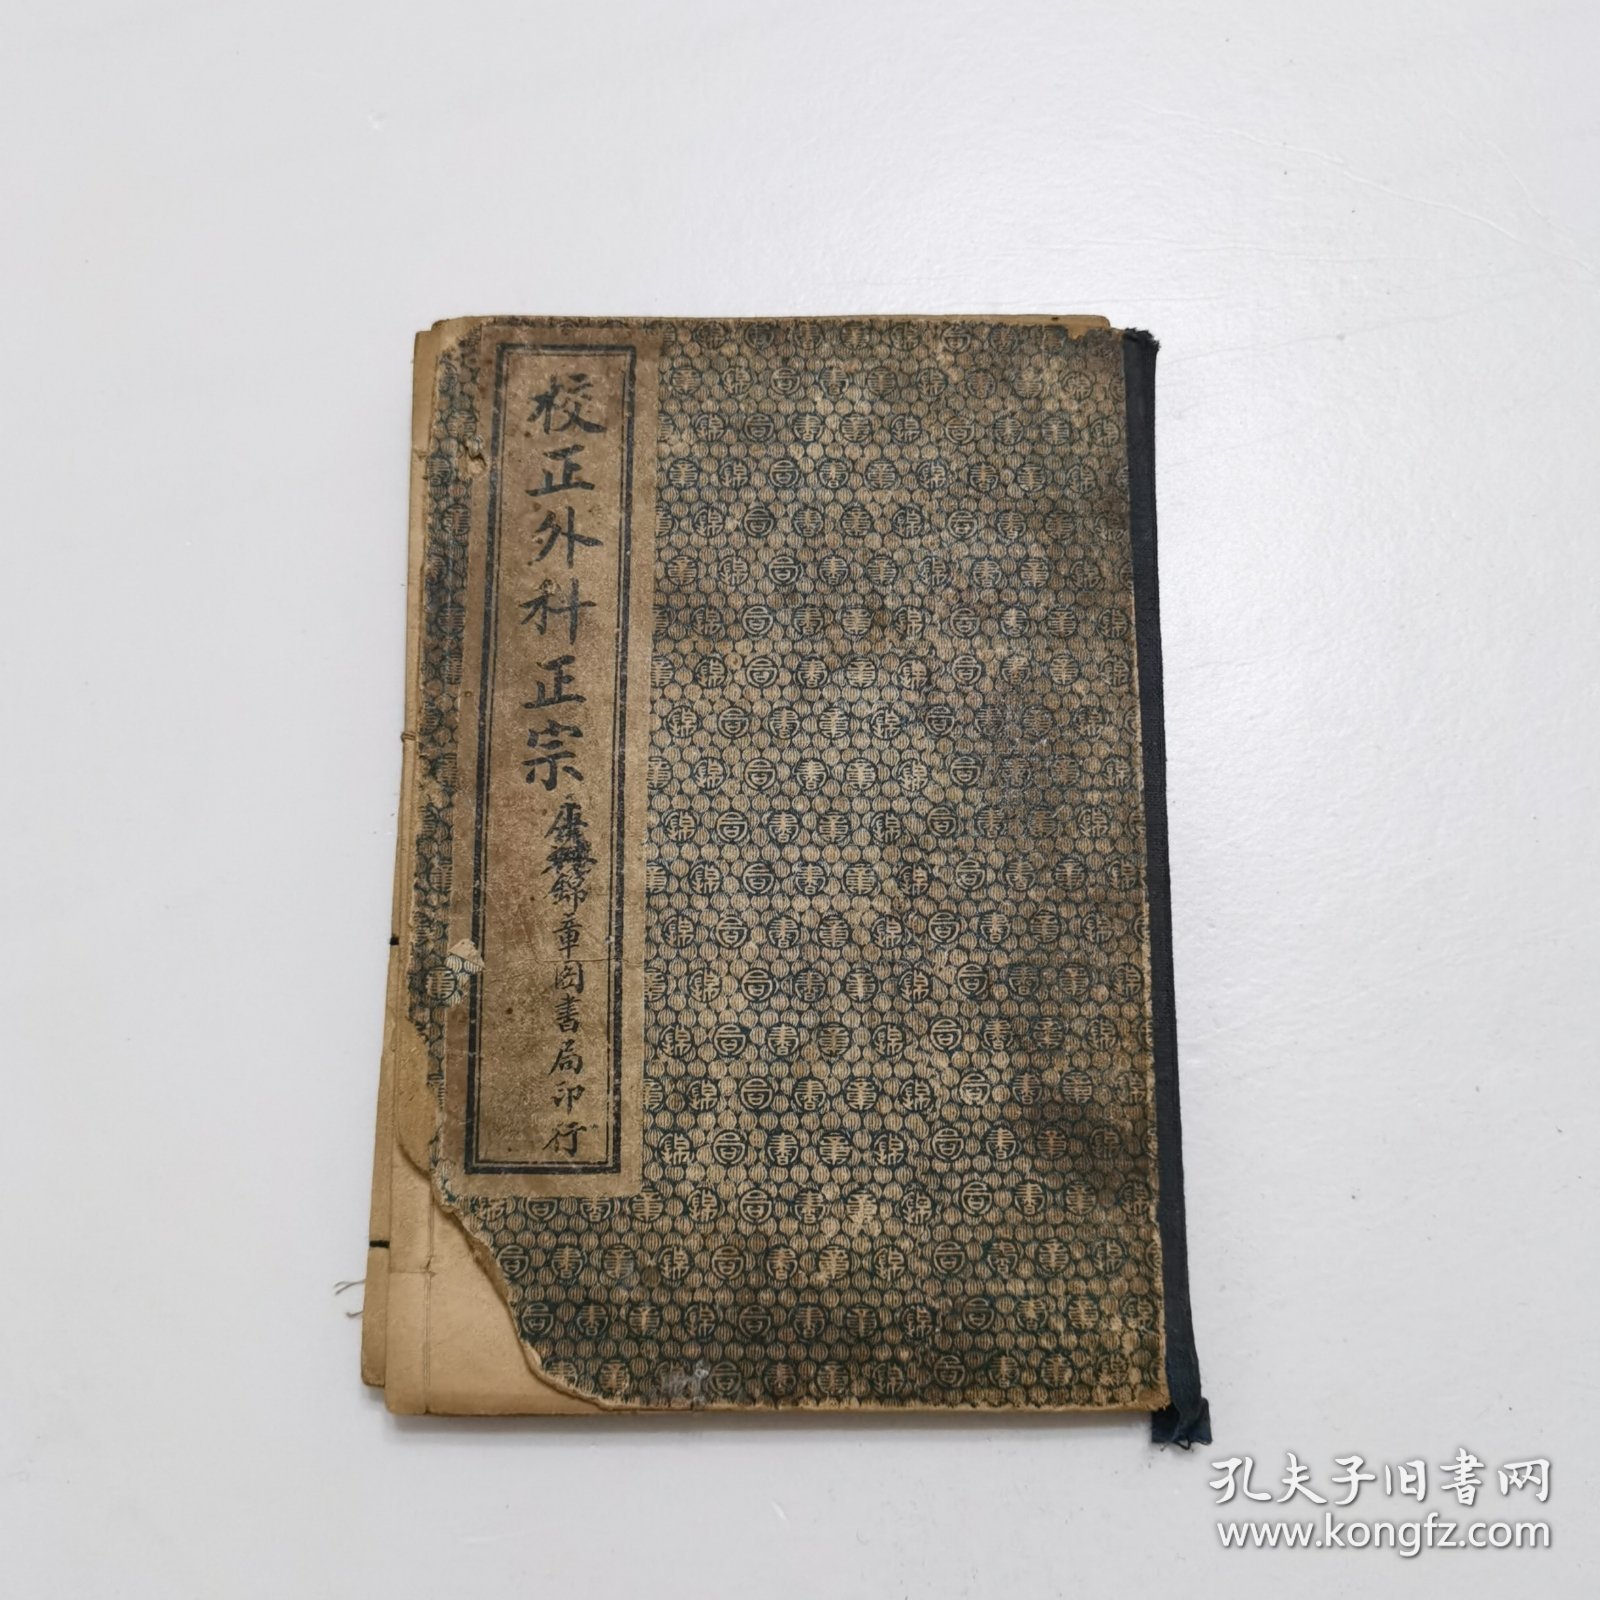 校正外科正宗
錦章圖書局印行
孔夫子旧书网
www.kongfz.com